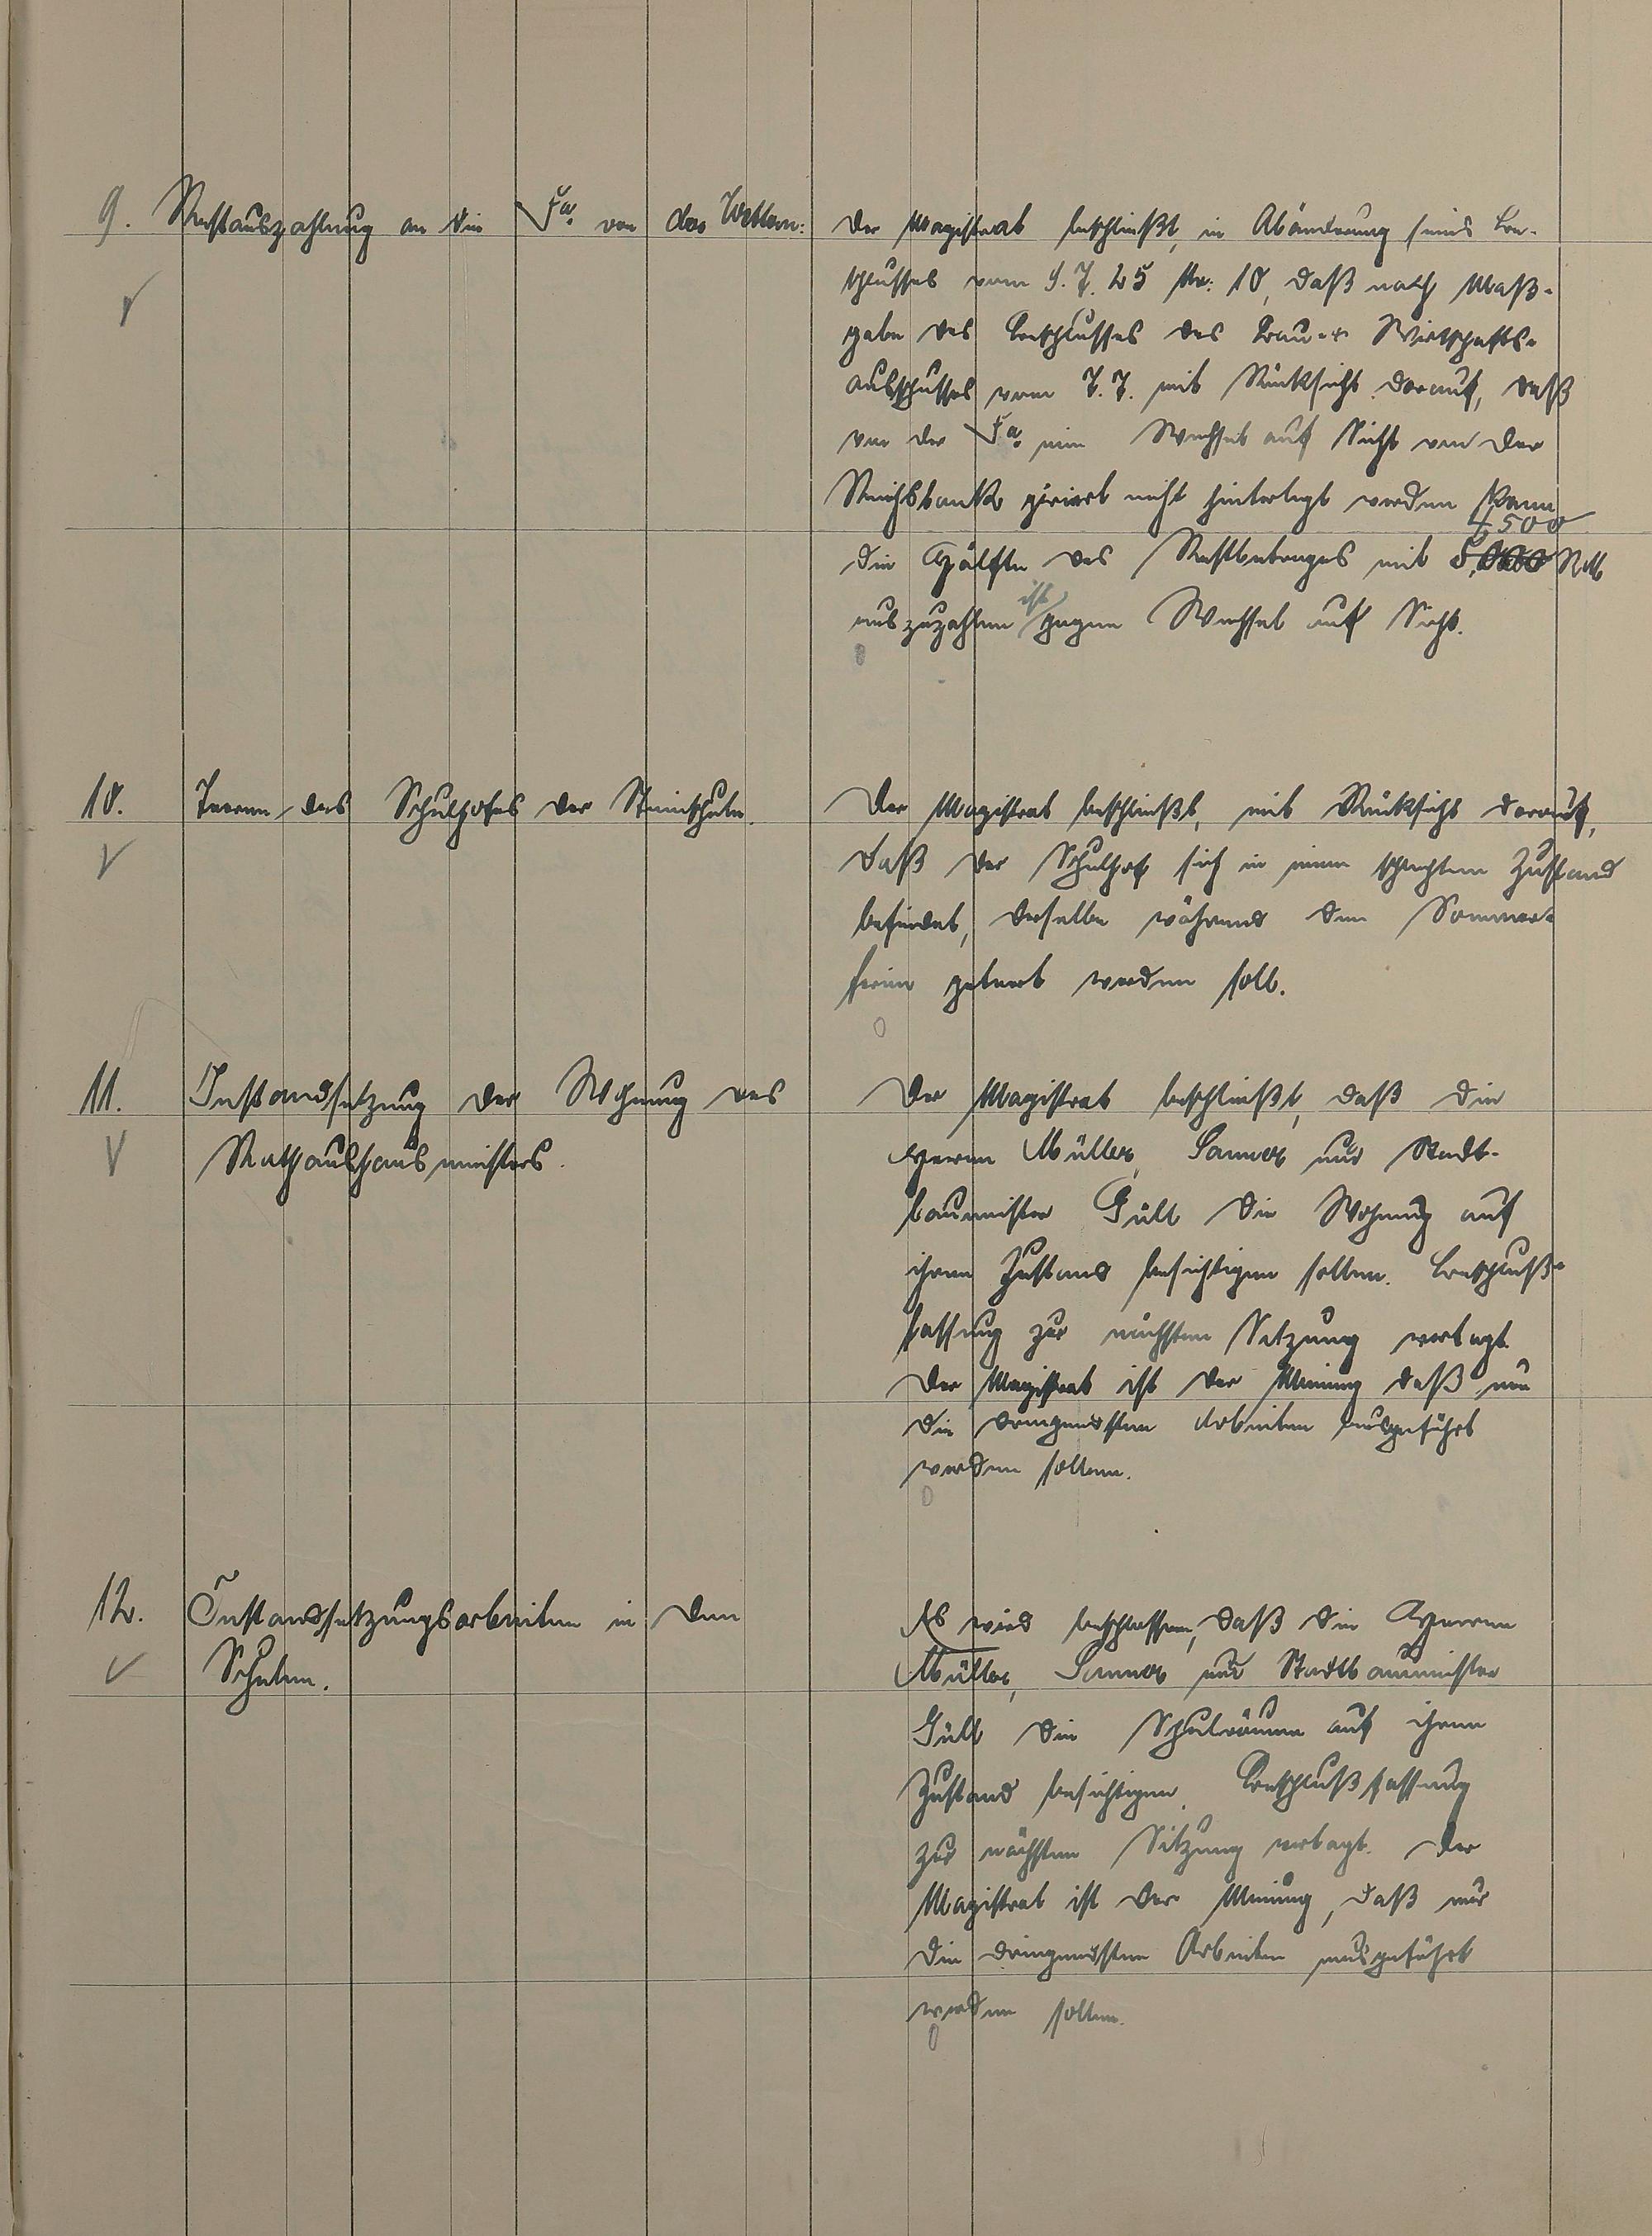 9. Restauszahlung an die Fa. von der Wettern:
Der Magistrat beschließt, in Abänderung seines Be-
schlusses vom 9.7.25 Nr: 10, daß nach Maß-
gabe des Beschlusses des Bau- u. Wirtschafts-
ausschusses vom 7.7. mit Rücksicht darauf, daß
von der Fa. ein Wechsel auf Sicht von der
Reichsbank giriert nicht hinterlegt werden kann
die Hälfte des Restbetrages mit 4500 RM
auszuzahlen ist gegen Wechsel auf Sicht.
10. Teeren des Schulhofes der Steinschule.
Der Magistrat beschließt, mit Rücksicht darauf,
daß der Schulhof sich in einem schlechten Zustand
befindet, derselbe während den Sommer-
ferien geteert werden soll.
11. Instandsetzung der Wohnung des
Rathaushausmeisters.
Der Magistrat beschließt, daß die
Herren Müller, Sanner und Stadt-
baumeister Güll die Wohnung auf
ihren Zustand besichtigen sollen. Beschluß-
fassung zur nächsten Sitzung vertagt.
Der Magistrat ist der Meinung daß nur
die dringendsten Arbeiten ausgeführt
werden sollen.
12. Instandsetzungsarbeiten in den
Schulen.
Es wird beschlossen, daß die Herren
Müller, Sanner und Stadtbaumeister
Güll die Schulräume auf ihren
Zustand besichtigen. Beschlußfassung
zur nächsten Sitzung vertagt. Der
Magistrat ist der Meinung, daß nur
die dringendsten Arbeiten ausgeführt
werden sollen.